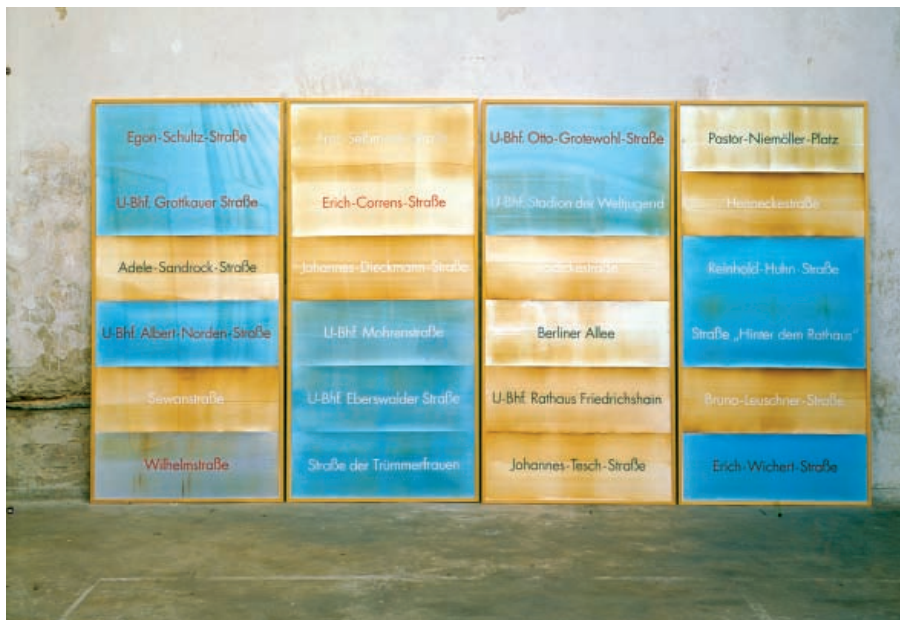 Egon-Schultz-Straße
U-Bhf. Grottkauer Straße
Adele-Sandrock-Straße
U-Bhf. Albert-Norden-Straße
Sewanstraße
Wilhelmstraße
Erich-Correns-Straße
Johannes-Dieckmann-Straße
U-Bhf. Mohrenstraße
U-Bhf. Eberswalder Straße
Straße der Trümmerfrauen
U-Bhf. Otto-Grotewohl-Straße
U-Bhf. Stadion der Weltjugend
Berliner Allee
U-Bhf. Rathaus Friedrichshain
Johannes-Tesch-Straße
Pastor-Niemöller-Platz
Henneckestraße
Reinhold-Huhn-Straße
Straße „Hinter dem Rathaus“
Bruno-Leuschner-Straße
Erich-Wichert-Straße